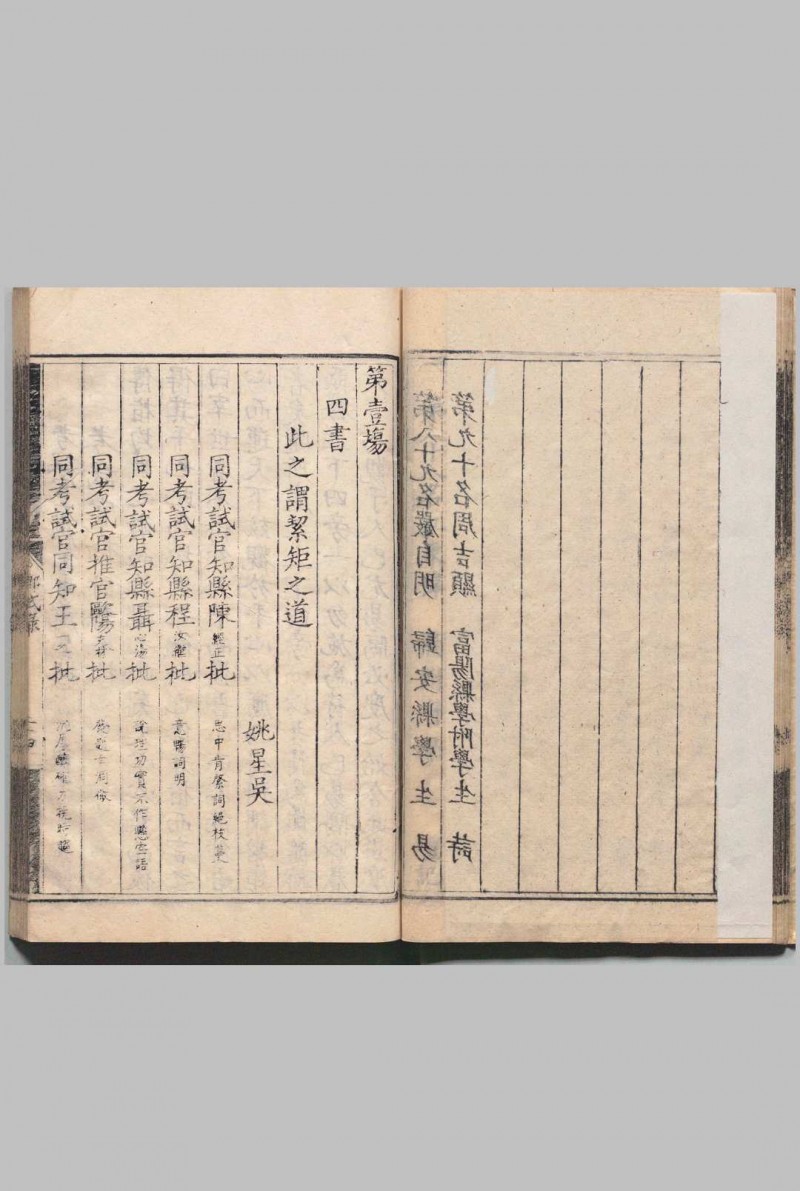 第九十名周吉顯　富陽縣學附學生　詩
第八十九名嚴自明　歸安縣學生　易
第壹塲
四書
此之謂絜矩之道
姚星吳
同考試官知縣陳經正批　思中肯綮詞絕枝葉
同考試官知縣程汝繼批　意暢詞明
同考試官知縣聶心湯批　說理切實不作懸空語
同考試官推官歐陽批
同考試官同知王批